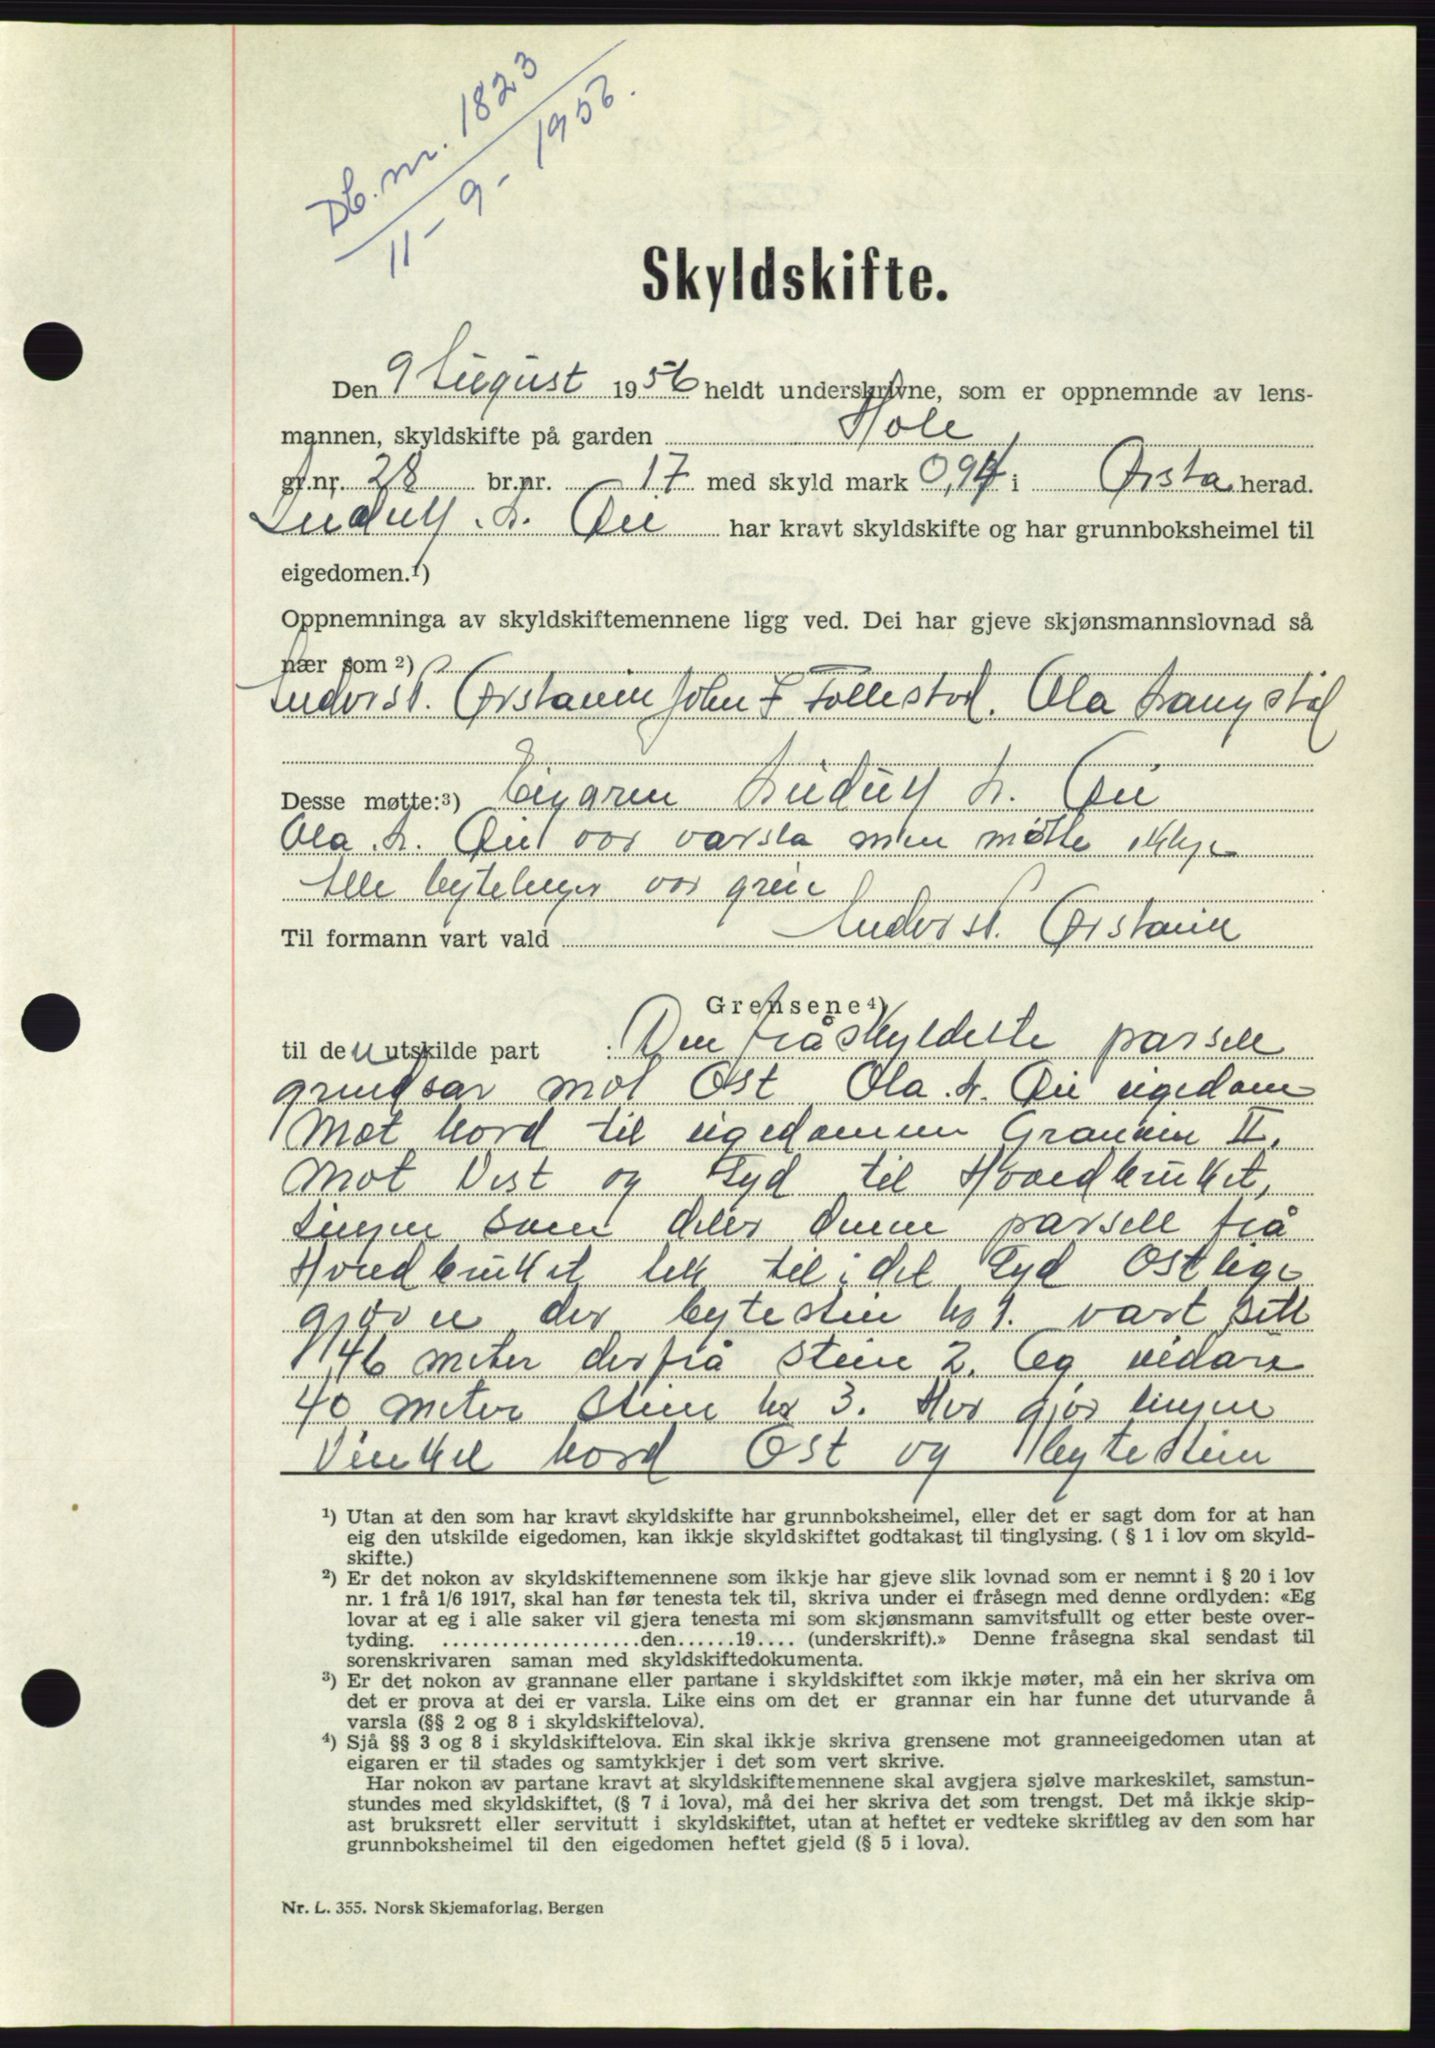 Db. nr. 1823
11 - 9 - 1956.
Skyldskifte.
Den 9 August 1956 heldt underskrivne, som er oppnemnde av lens-
mannen, skyldskifte på garden Hole
gr.nr. 28 br.nr. 17 med skyld mark 0,94 i Ørsta herad.
L. Øie har kravt skyldskifte og har grunnboksheimel til
eigedomen.¹)
Oppnemninga av skyldskiftemennene ligg ved. Dei har gjeve skjønsmannslovnad så
nær som ²)
Anders K. Ørstavik John F Follestad. Ola Langstøl
Desse møtte:³) Eigaren L. Øie
Ola L. Øie var varsla men møtte ikkje
Alle bytelinjer var greie
Til formann vart vald Anders K. Ørstavik
Grensene⁴)
til den utskilde part : Den fråskyldete parsell
grensar mot Øst Ola L. Øie eigedom
Mot Nord til eigedomen Granheim II.
Mot Vest og Syd til Hovedbruket,
Linjen som deler denne parsell frå
Hovedbruket tek til i det Syd Østlige
hjørne der bytestein nr 1. vart sett
46 meter derfrå stein 2. Og vidare
40 meter stein nr 3. Her gjør linjen
Vinkel Nord Øst og bytestein
¹) Utan at den som har kravt skyldskifte har grunnboksheimel, eller det er sagt dom for at han
eig den utskilde eigedomen, kan ikkje skyldskiftet godtakast til tinglysing. ( § 1 i lov om skyld-
skifte.)
²) Er det nokon av skyldskiftemennene som ikkje har gjeve slik lovnad som er nemnt i § 20 i lov
nr. 1 frå 1/6 1917, skal han før tenesta tek til, skriva under ei fråsegn med denne ordlyden: «Eg
lovar at eg i alle saker vil gjera tenesta mi som skjønsmann samvitsfullt og etter beste over-
tyding. ....................den......19.... (underskrift).» Denne fråsegna skal sendast til
sorenskrivaren saman med skyldskiftedokumenta.
³) Er det nokon av grannane eller partane i skyldskiftet som ikkje møter, må ein her skriva om
det er prova at dei er varsla. Like eins om det er grannar ein har funne det uturvande å
varsla (§§ 2 og 8 i skyldskiftelova).
⁴) Sjå §§ 3 og 8 i skyldskiftelova. Ein skal ikkje skriva grensene mot granneeigedomen utan at
eigaren er til stades og samtykkjer i det som vert skrive.
Har nokon av partane kravt at skyldskiftemennene skal avgjera sjølve markeskilet, samstun-
stundes med skyldskiftet, (§ 7 i lova), må dei her skriva det som trengst. Det må ikkje skip-
ast bruksrett eller servitutt i skyldskiftet, utan at heftet er vedteke skriftleg av den som har
grunnboksheimel til den eigedomen heftet gjeld (§ 5 i lova).
Nr. L. 355. Norsk Skjemaforlag, Bergen